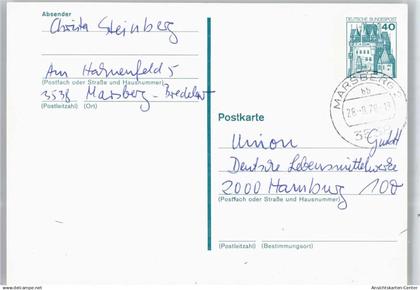 Absender
Christa Steinberg
Am Hahnenfeld 5
(Postfach oder Straße und Hausnummer)
3538 Marsberg-Bredelar
(Postleitzahl) (Ort)
DEUTSCHE BUNDESPOST
40
MARSBERG
bb
Postkarte
Union GmbH
Deutsche Lebensmittelwerke
2000 Hamburg 100
(Postfach oder Straße und Hausnummer)
(Postleitzahl) (Bestimmungsort)
www.delcampe.net
Ansichtskarten-Center